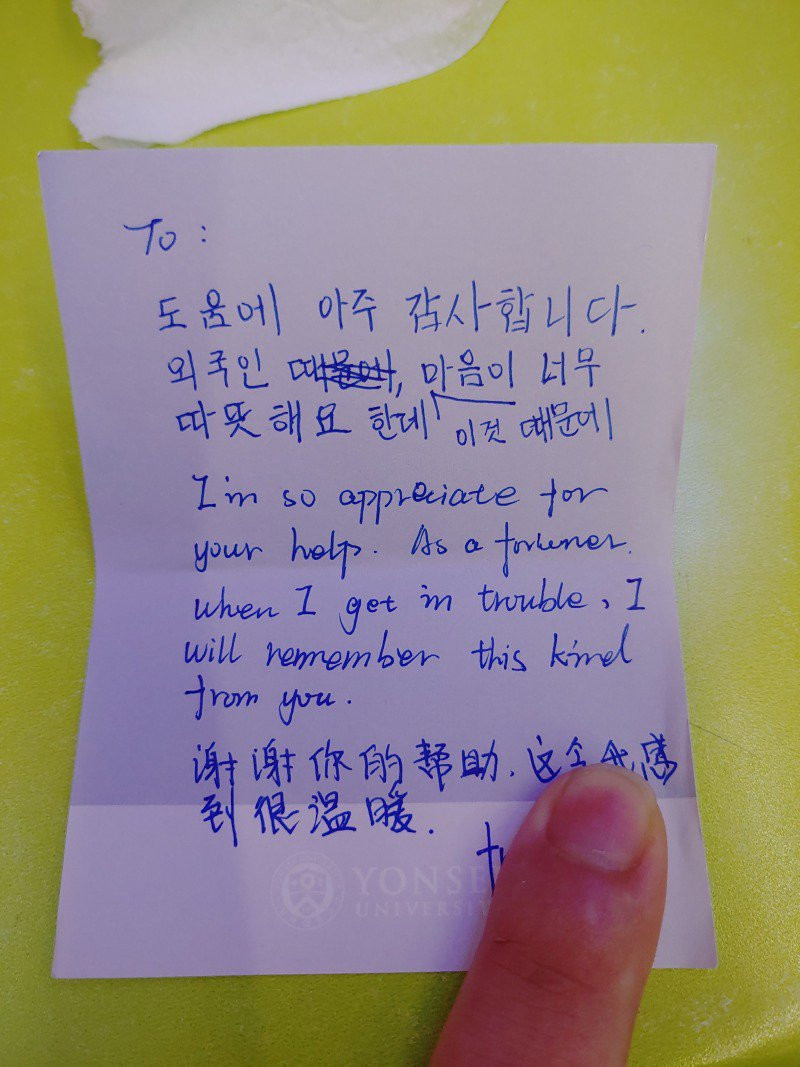 To :
도움에 아주 감사합니다.
외국인 , 마음이 너무
따뜻해요 한데 이것 때문에
I'm so appreciate for
your help. As a foriener.
when I get in trouble, I
will remember this kind
from you.
谢谢你的帮助. 这 我感
到很温暖.
YONSE
UNIVERSIT